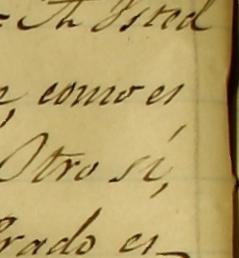 Usted
como es
Otro sí,
Prado es